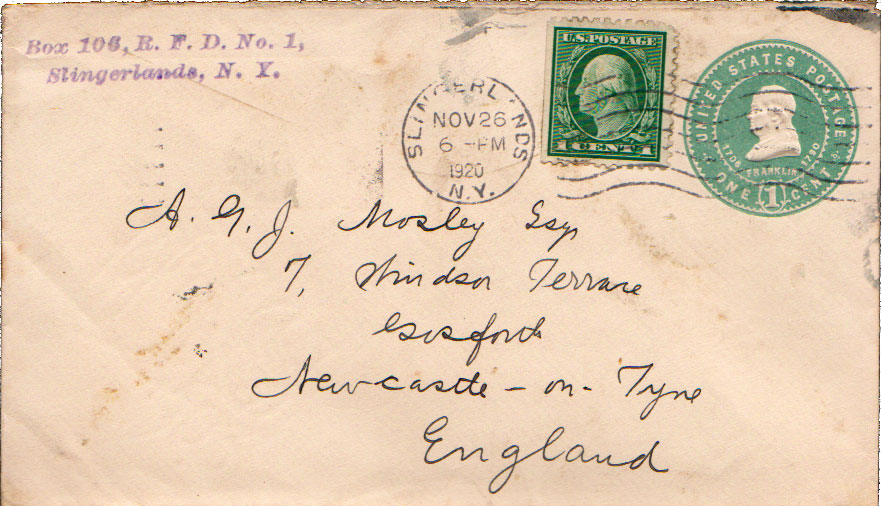 Box 106, R. F. D. No. 1,
Slingerlands, N. Y.
SLINGERLANDS
NOV 26
6 - PM
1920
N.Y.
U.S. POSTAGE
1 CENT 1
UNITED STATES POSTAGE
1706 FRANKLIN 1790
ONE 1 CENT
A. G. J. Mosley Esq,
7, Windsor Terrace
Gosforth
Newcastle - on - Tyne
England